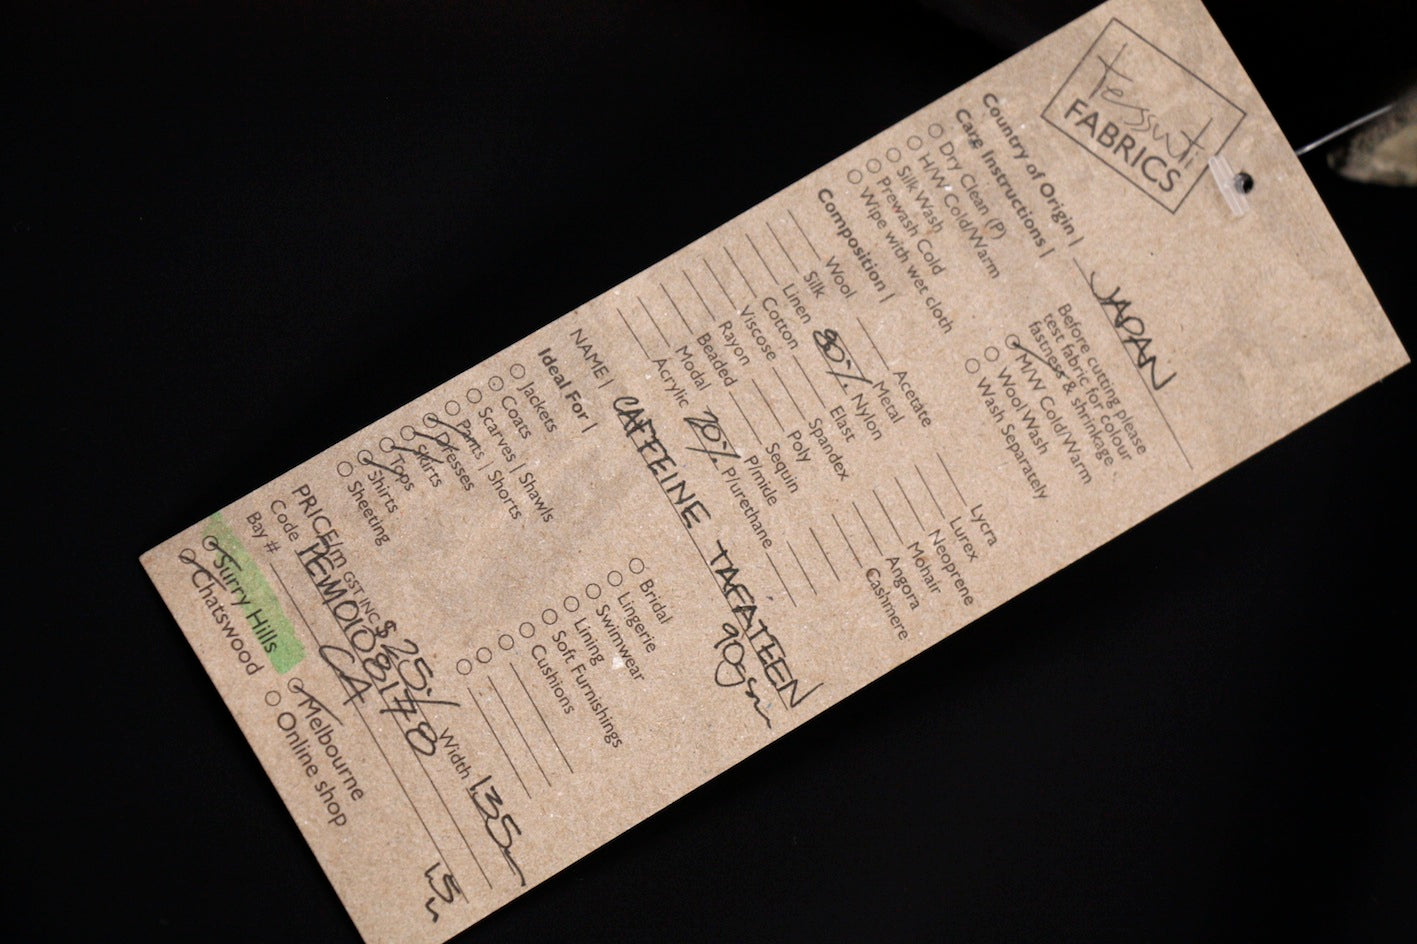 tessuti
FABRICS
Country of Origin | JAPAN
Care Instructions |
Dry Clean (P)
H/W Cold/Warm
Silk Wash
Prewash Cold
Wipe with wet cloth
Before cutting please
test fabric for colour
fastness & shrinkage
M/W Cold/Warm
Wool Wash
Wash Separately
Composition |
Wool
Silk
Linen
Cotton
Viscose
Rayon
Beaded
Modal
Acrylic
Acetate
Metal
80% Nylon
Elast
Spandex
Poly
Sequin
P/mide
20% P/urethane
Lycra
Lurex
Neoprene
Mohair
Angora
Cashmere
NAME | CAFFEINE TAFATEEN
90gsm
Ideal For |
Jackets
Coats
Scarves | Shawls
Pants | Shorts
Dresses
Skirts
Tops
Shirts
Sheeting
Bridal
Lingerie
Swimwear
Lining
Soft Furnishings
Cushions
PRICE/m GST INC $25 Width 135
Code
Bay # CA
Surry Hills
Chatswood
Melbourne
Online shop